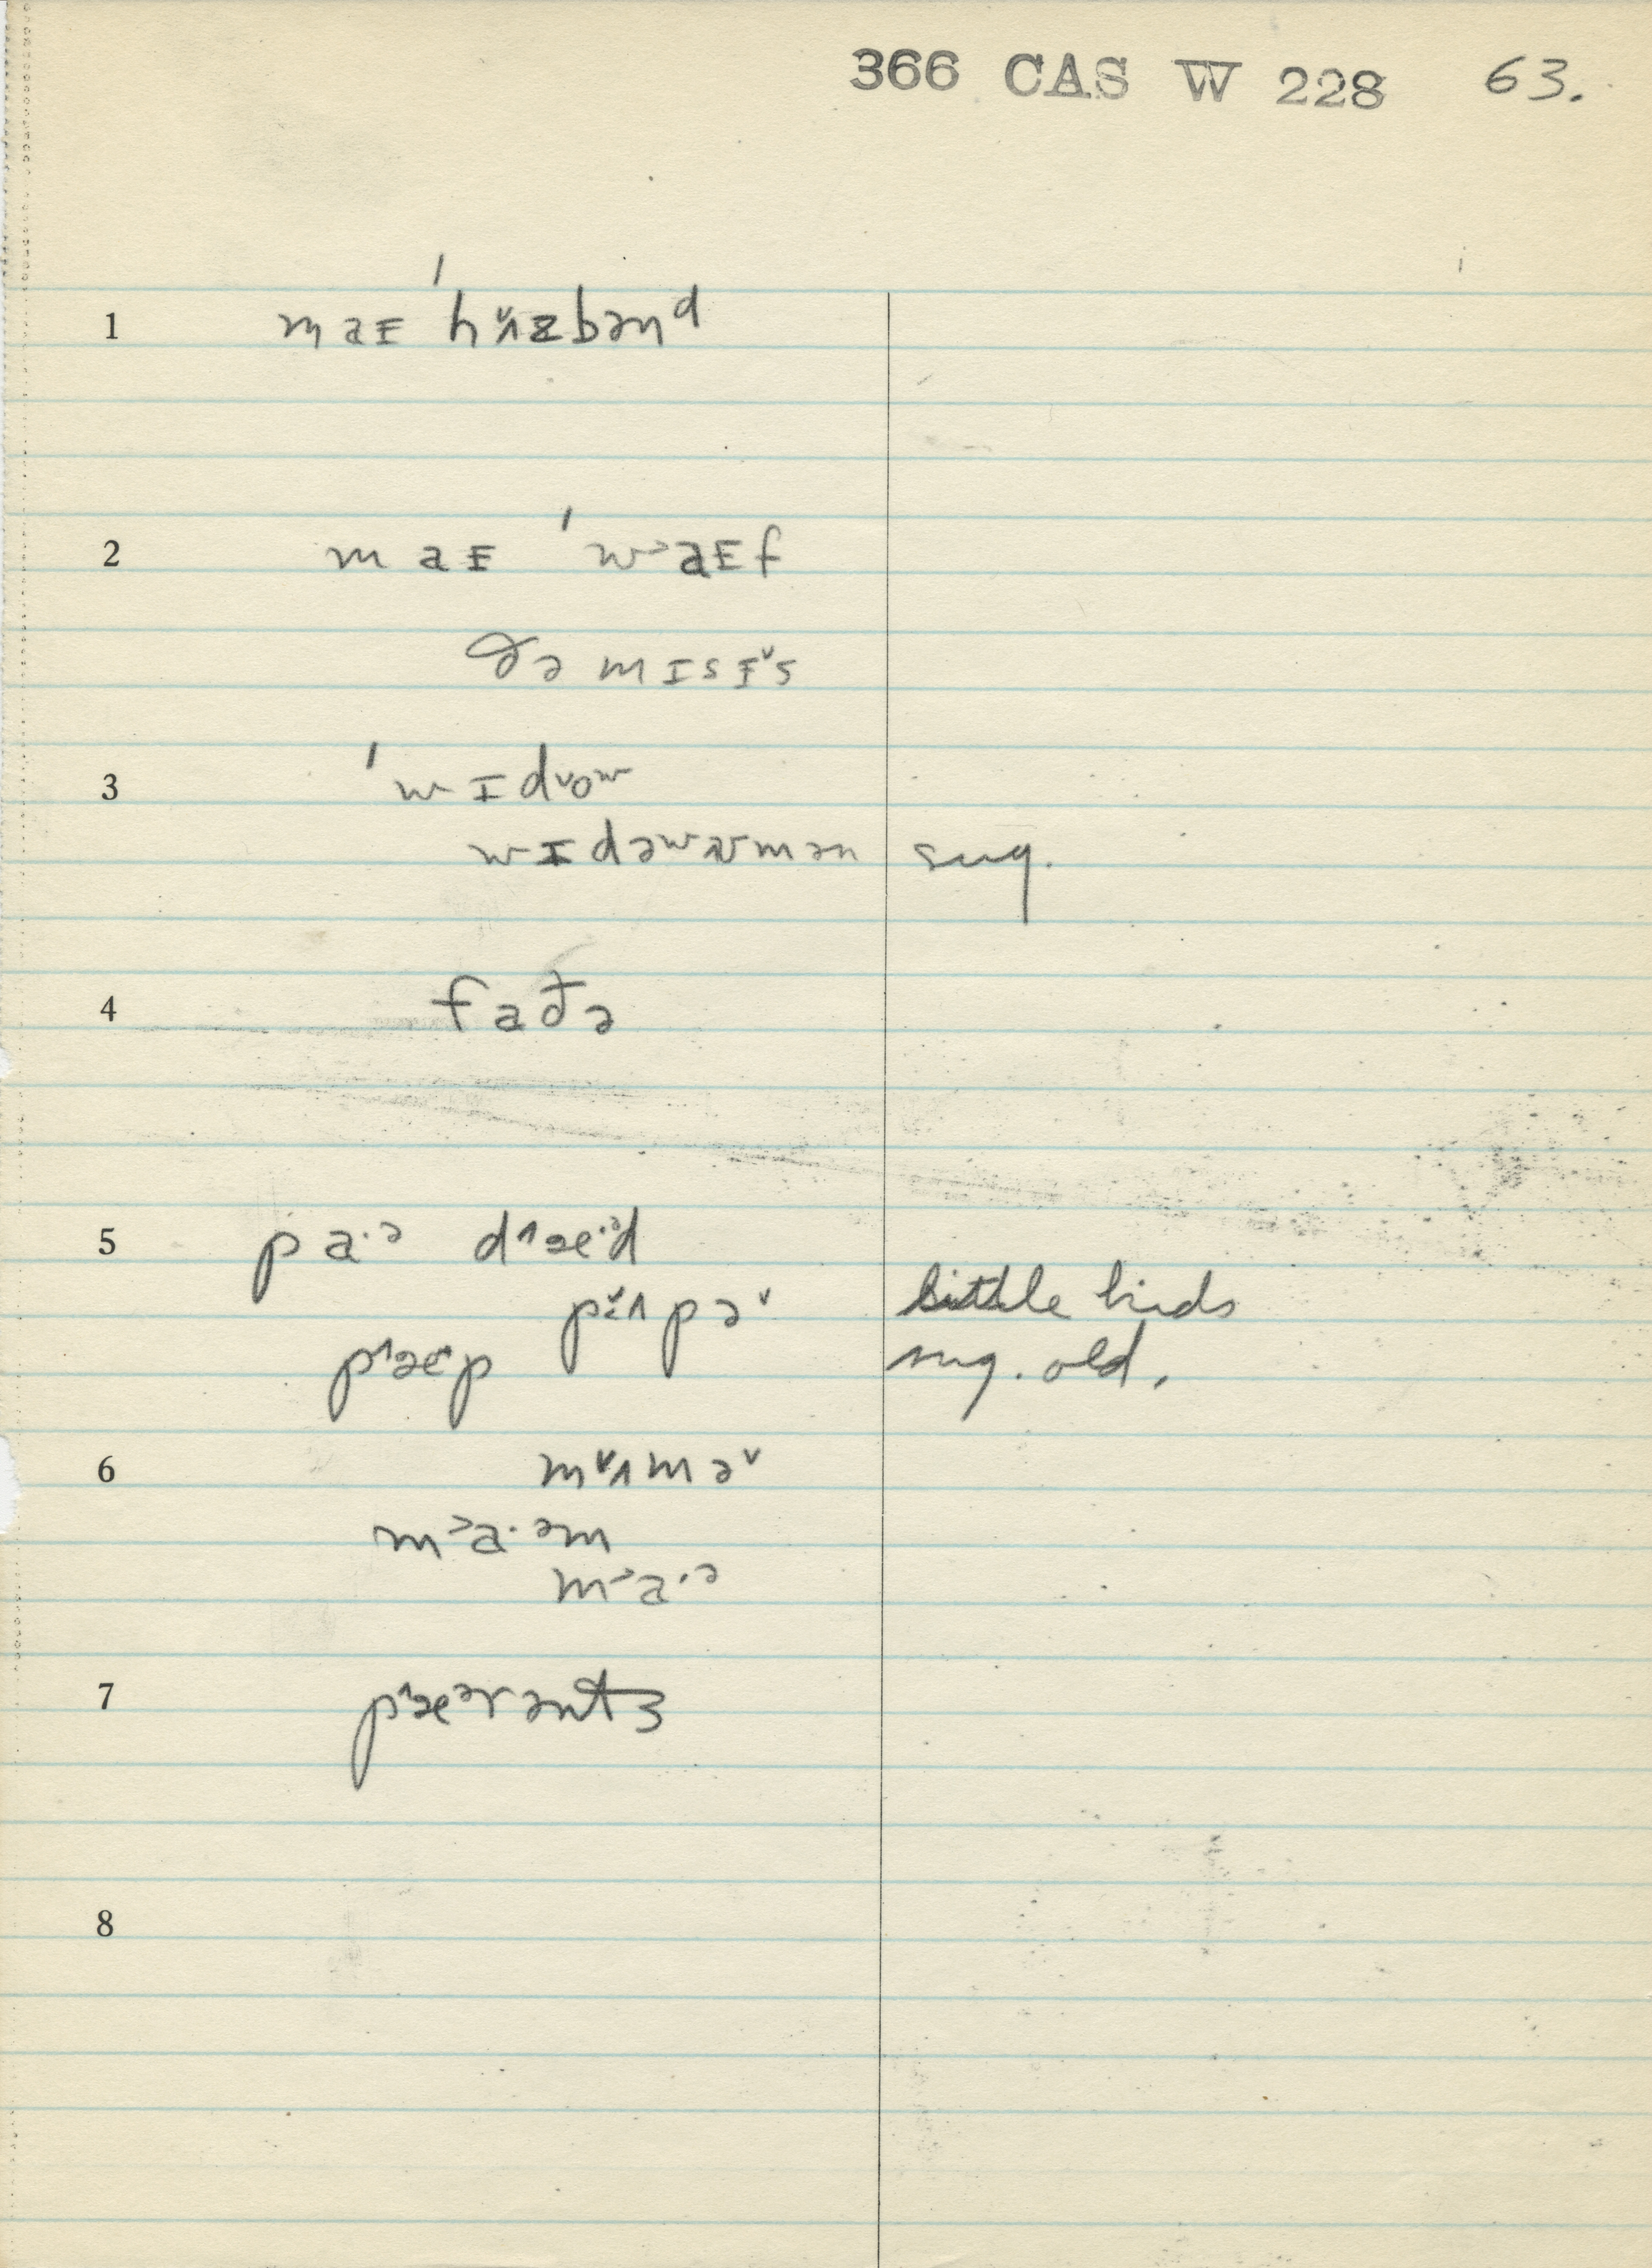 366 CAS W 228 63.
1 maɪ ˈhʌ̌zbənᵈ
2 maɪ ˈw˃aɪf
ðə mɪsɪ˅s
3 ˈwɪd˅oʷ
wɪdəʷwmən sug.
4 faðə
5 pa·ᵊ d˄æ·ᵊd
p˅ʌpə˅ little kids
p˄æp sug. old.
6 m˅ʌmə˅
m˃a·ᵊm
m˃a·ᵊ
7 p˄æᵊrəntʒ
8